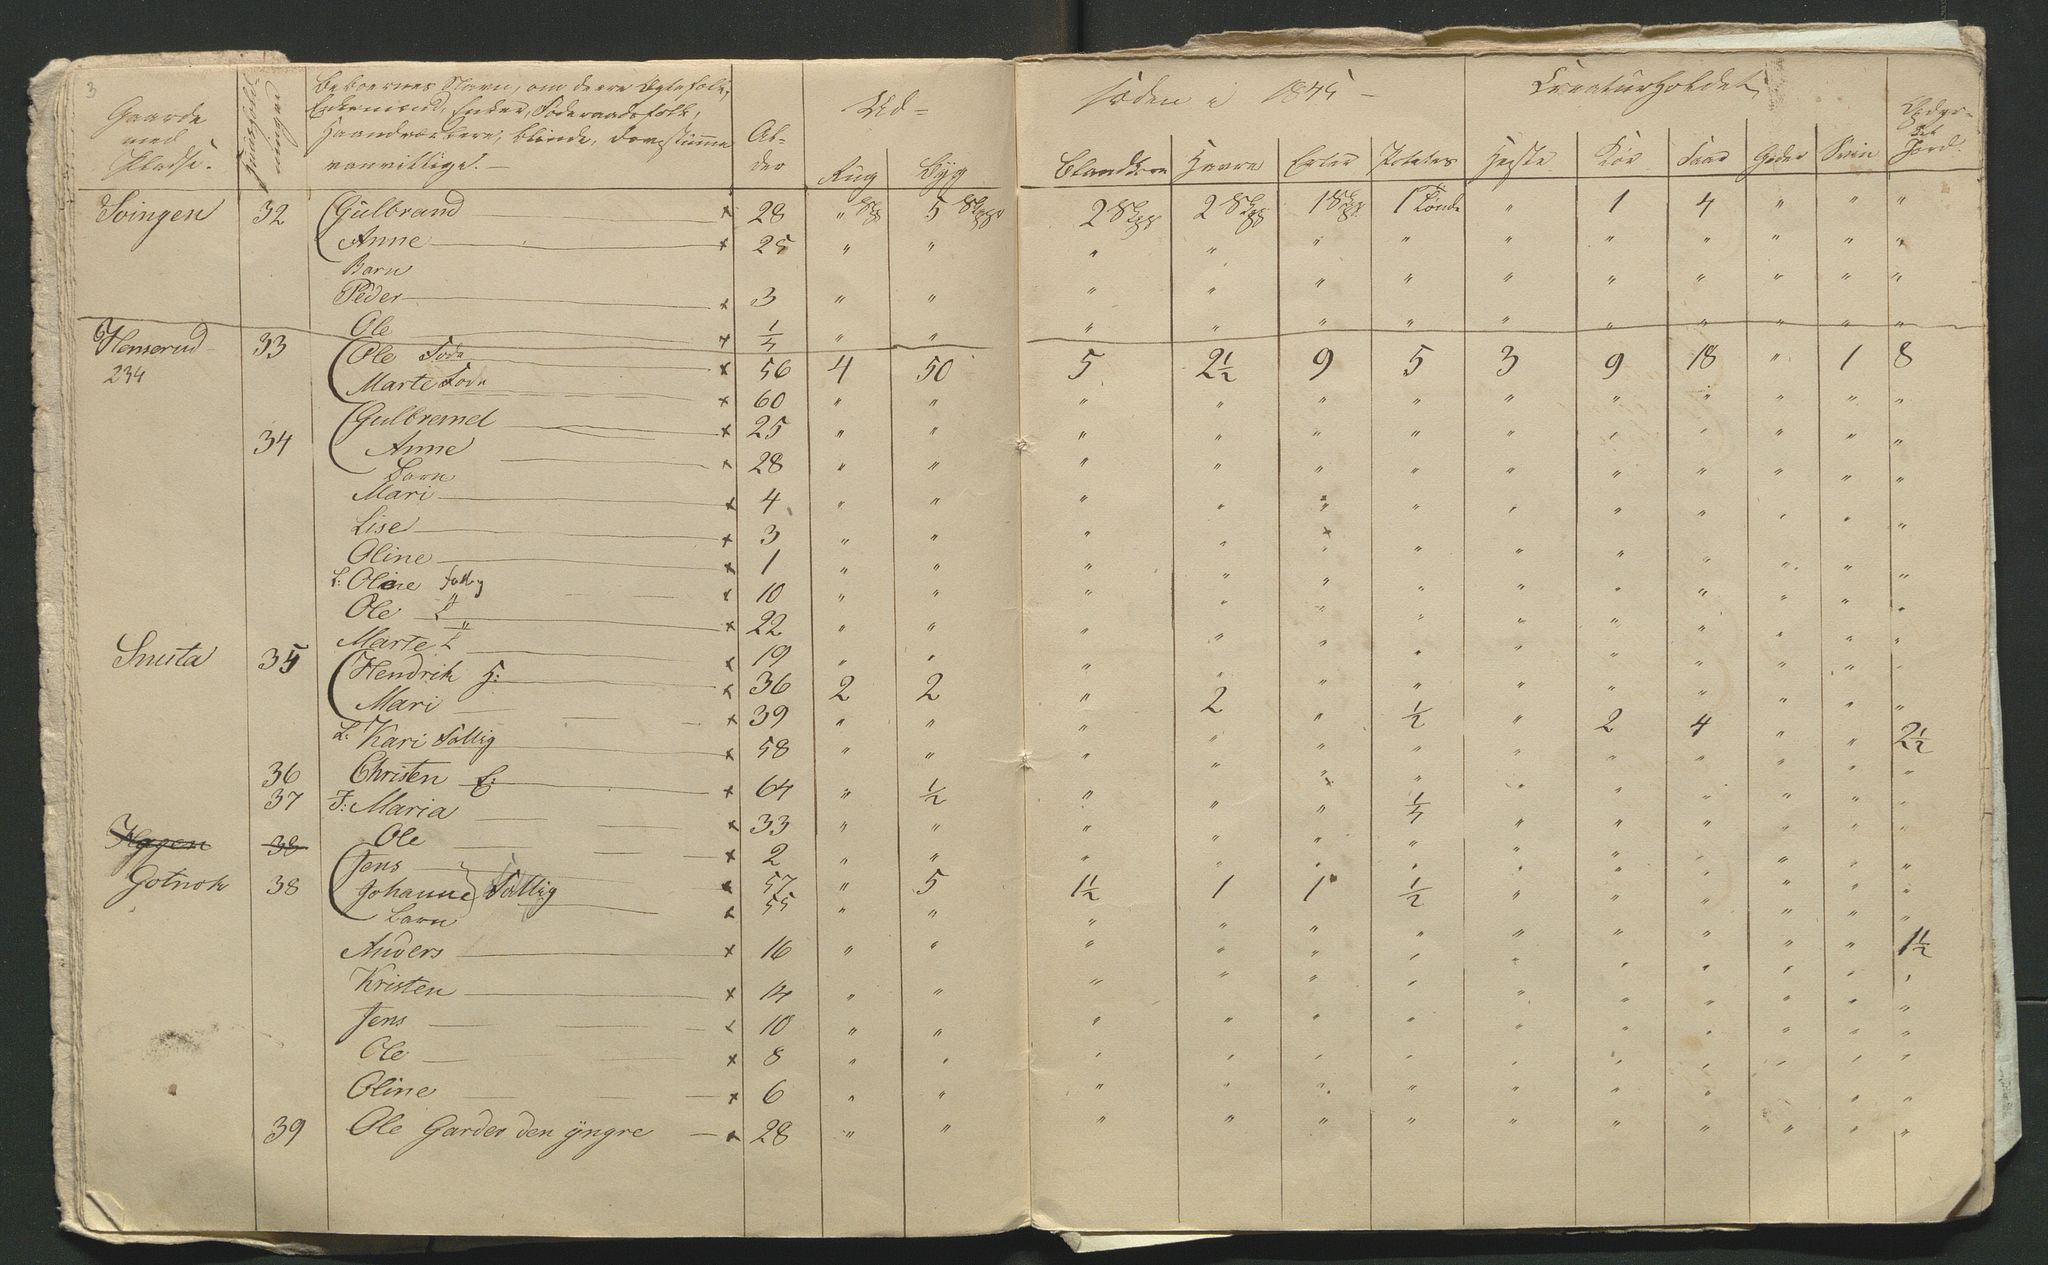 3
Gaarde med Pladse. Huusholdninger Beboernes Navn, om de ere Ægtefolk,
Enkemænd, Enker, Føderaadsfolk,
Haandværkere, blinde, døvstumme
vanvittige. — Alder Ud= sæden i 1845 — Creaturholdet
Rug Byg Blandkorn Havre Erter Potetes Heste Kör Faar Geder Svin Jord.
Svingen 32 Gulbrand x 28 " Skp 5 Skpr 2 Skpr 2 Skpr 1 Skpr 1 Tönde " 1 4 " " "
Anne x 25 " " " " " " " " " " " "
Barn
Peder x 3 " " " " " " " " " " " "
Ole x 1/4 " " " " " " " " " " " "
Hemserud 33 Ole Födr x 56 4 50 5 2 1/2 9 5 3 9 18 " 1 8
234 Marte Födr x 60 " " " " " " " " " " " "
34 Gulbrand x 25 " " " " " " " " " " " "
Anne x 28 " " " " " " " " " " " "
Barn
Mari x 4 " " " " " " " " " " " "
Lise x 3 " " " " " " " " " " " "
Oline x 1 " " " " " " " " " " " "
L: Oline x 10 " " " " " " " " " " " "
Ole L x 22 " " " " " " " " " " " "
Marte L x 19 " " " " " " " " " " " "
Snesta 35 Hendrik H: x 36 2 2 " 2 " 1/2 " 2 4 " " 2 1/2
Mari x 39 " " " " " " " " " " " "
L: Kari Fattig x 58 " " " " " " " " " " " "
36 Christen E: x 64 " 1/2 " " " 1/4 " " " " " "
37 I: Maria x 33 " " " " " " " " " " " "
Hagen 38 Ole x 2 " " " " " " " " " " " "
Gotnok 38 Jens x 57 " 5 1 1/2 1 1 1/2 " " " " " 1 1/2
Johanne Fattig x 55 " " " " " " " " " " " "
Barn
Anders x 16 " " " " " " " " " " " "
Kristen x 14 " " " " " " " " " " " "
Jens x 10 " " " " " " " " " " " "
Ole x 8 " " " " " " " " " " " "
Oline x 6 " " " " " " " " " " " "
39 Ole Garder den yngre x 28 " " " " " " " " " " " "